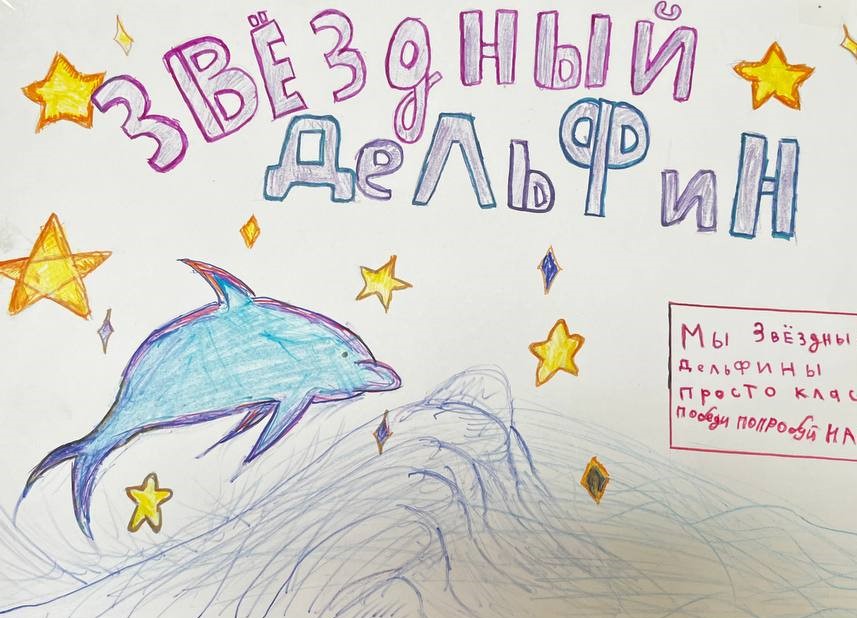 ЗВЁЗДНЫЙ
ДЕЛЬФИН
Мы Звёздны
Дельфины
просто клас
Победи попробуй НА